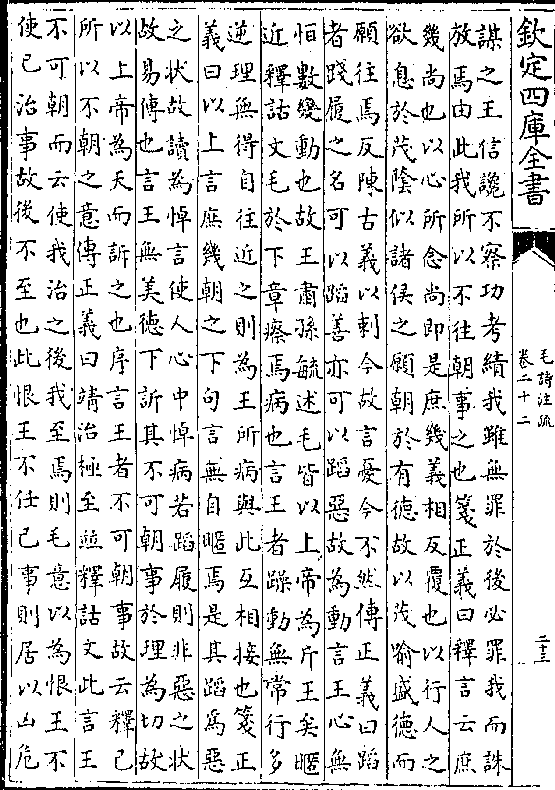 欽定四庫全書
毛詩注疏
卷二十二
二十三
謀之王信讒不察功考績我雖無罪於後必罪我而誅
放焉由此我所以不往朝事之也箋正義曰釋言云庶
幾尚也以心所念尚即是庶幾義相反覆也以行人之
欲息於茂陰似諸侯之願朝於有德故以茂喻盛德而
願往焉反陳古義以刺今故言憂今不然傳正義曰蹈
者踐履之名可以蹈善亦可以蹈惡故為動言王心無
恒數變動也故王肅孫毓述毛皆以上帝為斥王矣暱
近釋詁文毛於下章瘵焉病也言王者躁動無常行多
逆理無得自往近之則為王所病與此互相接也箋正
義曰以上言庶幾朝之下句言無自暱焉是其蹈為惡
之狀故讀為悼言使人心中悼病若蹈履則非惡之狀
故易傳也言王無美德下訴其不可朝事於理為切故
以上帝為天而訴之也序言王者不可朝事故云釋已
所以不朝之意傳正義曰靖治極至並釋詁文此言王
不可朝而云使我治之後我至焉則毛意以為恨王不
使已治事故後不至也此恨王不任已事則居以凶危